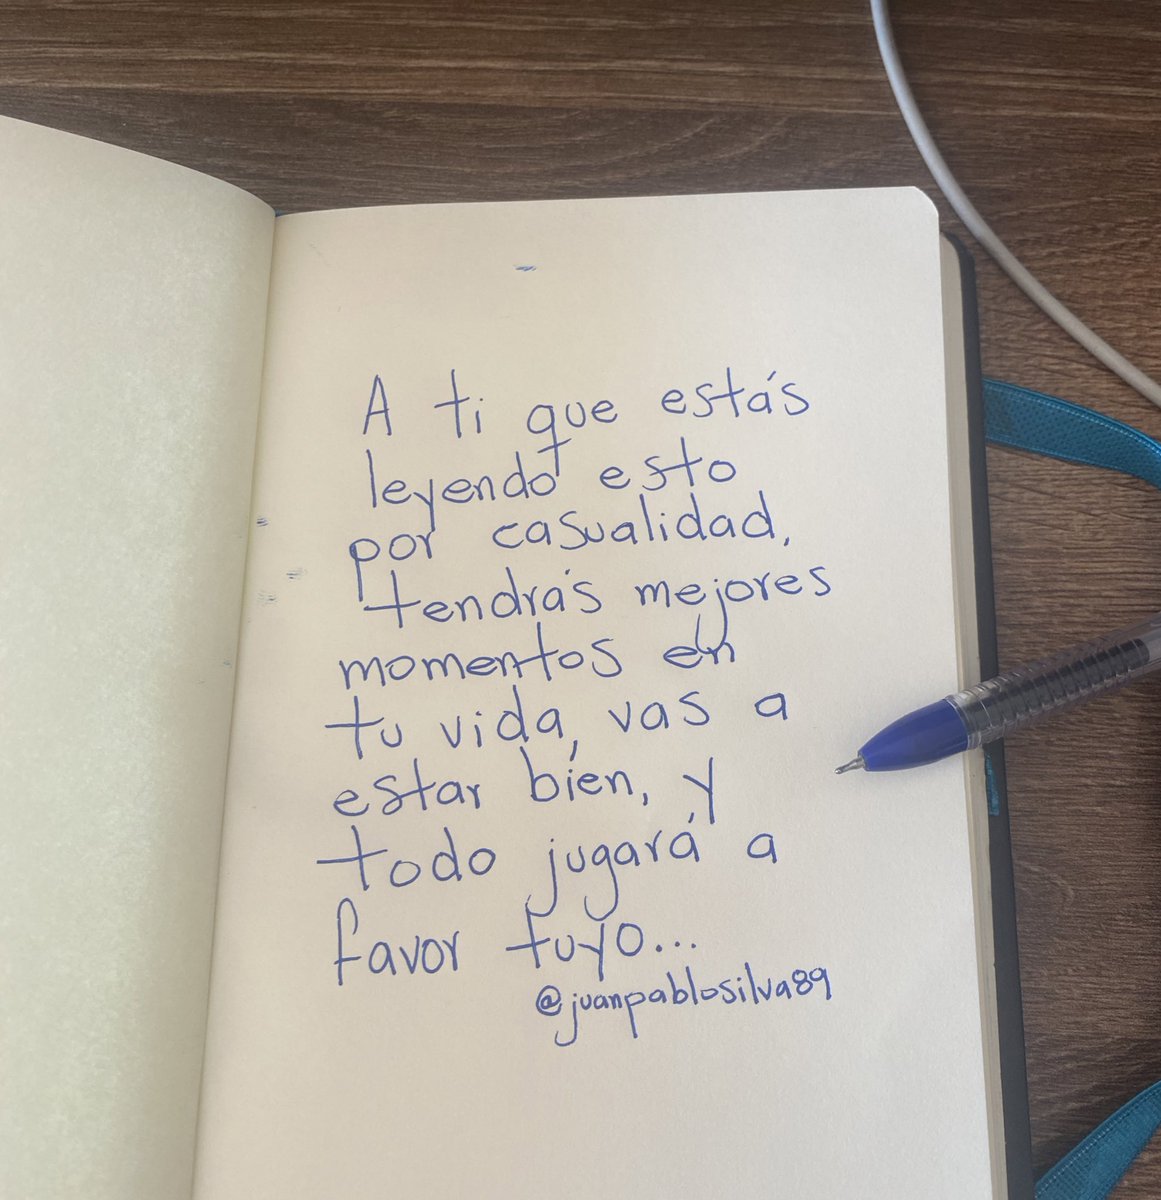 A ti que estás
leyendo esto
por casualidad,
tendrás mejores
momentos en
tu vida, vas a
estar bien, y
todo jugará a
favor tuyo...
@juanpablosilva89